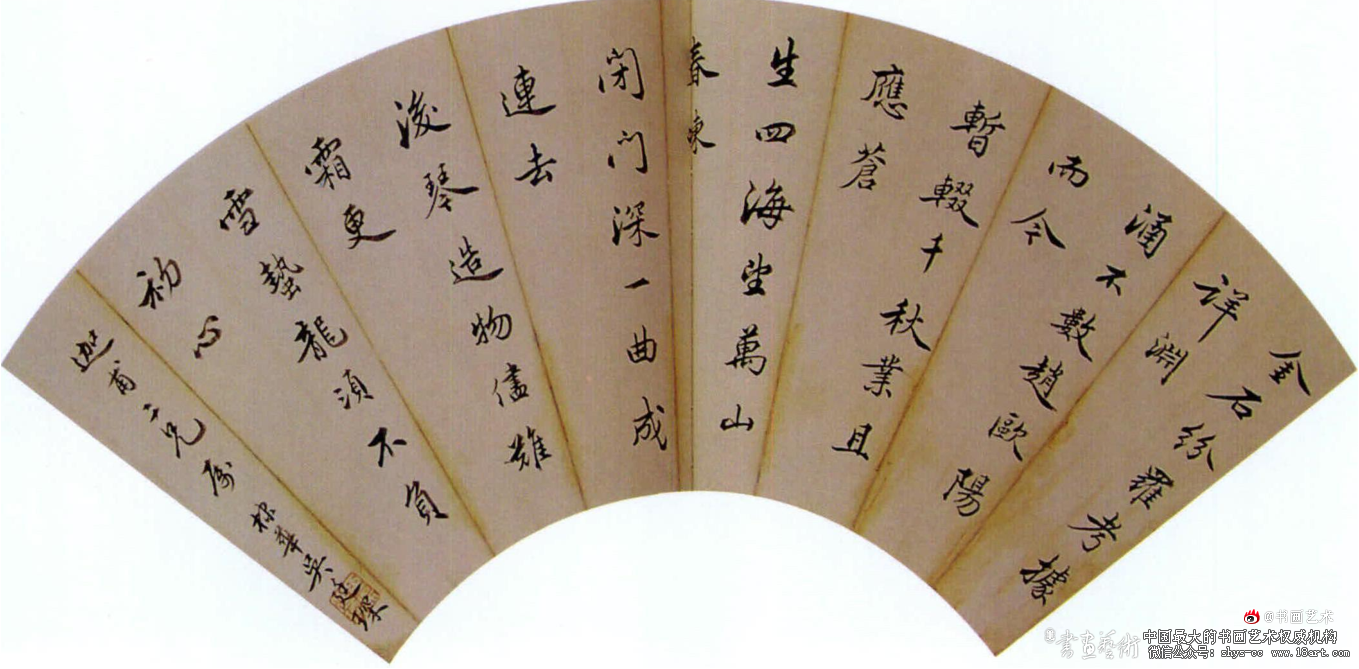 金石紛羅考據
詳淵
涌不數趙歐陽
而今
暫輟千秋業且
應蒼
生四海望萬山
春凍
閉門深一曲成
連去
後琴造物儘難
霜更
雪蟄龍須不負
初心
迦甫二兄屬 棣華吳廷琛
@书画艺术
書畫藝術
中国最大的书画艺术权威机构
微信公众号：shys-cc www.18art.com